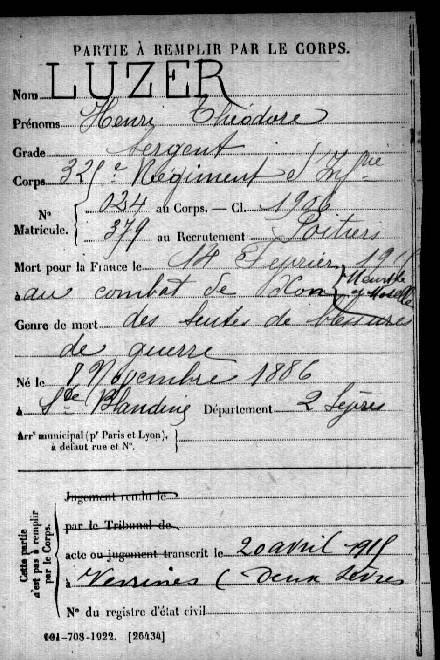 PARTIE À REMPLIR PAR LE CORPS.
Nom LUZER
Prénoms Henri Théodore
Grade Sergent
Corps 325e Régiment d'Infrie
Nº Matricule. 034 au Corps. — Cl. 1906
379 au Recrutement Poitiers
Mort pour la France le 14 Feprier 1915
à au combat de Xon Meurthe et Moselle
Genre de mort des suites de blessures
de guerre
Né le 8 Novembre 1886
à Ste Blandine Département 2 Sèvres
Arrt municipal (pr Paris et Lyon),
à défaut rue et Nº.
Cette partie n'est pas à remplir par le Corps.
Jugement rendu le
par le Tribunal de
acte ou jugement transcrit le 20 avril 1915
à Verrines (Deux Sèvres
Nº du registre d'état civil
101-708-1922. [26434]